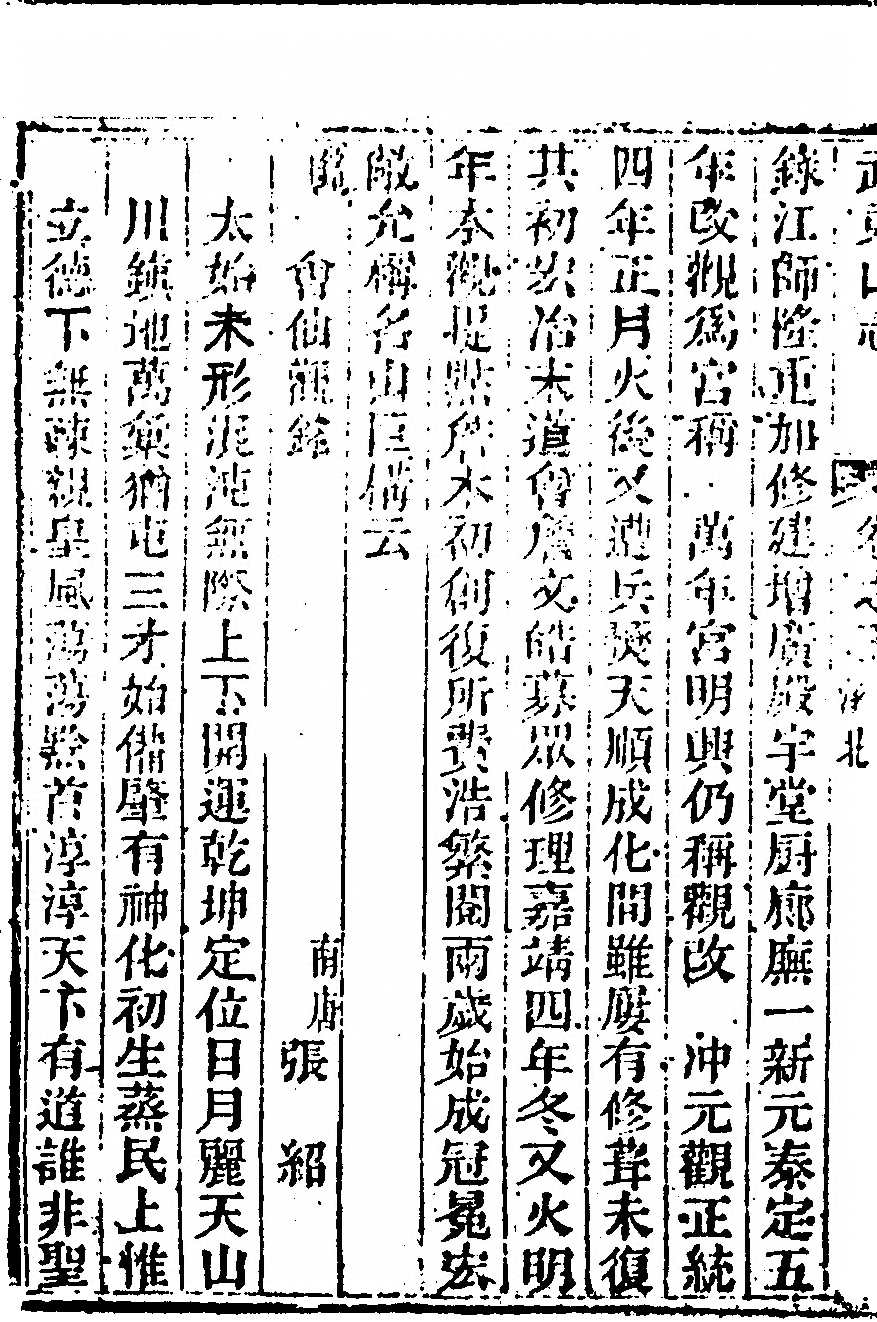 武夷山志 卷之 冲北
錄江師隆重加修建增廣殿宇堂厨廊廡一新元泰定五
年改觀爲宮稱 萬年宮明興仍稱觀改 冲元觀正統
四年正月火後又遭兵燹天順成化間雖屢有修葺未復
其初弘治末道會詹文皓募眾修理嘉靖四年冬又火明
年本觀提點詹本初創復所費浩繁閱兩歲始成冠冕宏
敞允稱名山巨搆云
銘 會仙觀銘 南唐 張紹
太始未形混沌無際上下開運乾坤定位日月麗天山
川鎮地萬彙猶屯三才始備肇有神化初生蒸民上惟
立德下無疎親皇風蕩蕩黔首淳淳天下有道誰非聖